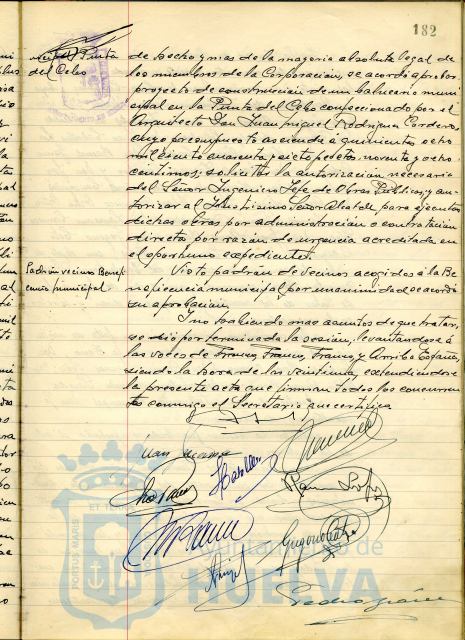 182
Punta
del Cebo
de hecho y mas de la mayoria absoluta legal de
los miembros de la Corporación, se acordó aprobar
proyecto de construcción de un balneario muni
cipal en la Punta del Cebo confeccionado por el
Arquitecto Don Juan Miguel Rodriguez Cordero,
cuyo presupuesto asciende a quinientas ocho
mil ciento cuarenta y siete pesetas, noventa y ocho
centimos; solicitar la autorización necesaria
del Señor Ingeniero Jefe de Obras Publicas, y au-
torizar al Ilustrisimo Señor Alcalde para ejecutar
dichas obras por administración o contratación
directa por razón de urgencia acreditada en
el oportuno expediente.
Padrón vecinos Benefi
cencia municipal
Visto padrón de vecinos acogidos a la Be
neficencia municipal por unanimidad se acordó
su aprobación.
Y no habiendo mas asuntos de que tratar,
se dió por terminada la sesión, levantandose a
las voces de Franco, Franco, Franco y Arriba España,
siendo la hora de las veintiuna, extendiendose
la presente acta que firman todos los concurren
tes conmigo el Secretario que certifico
PORTUS MARIS
ET TE
Ayuntamiento de
HUELVA